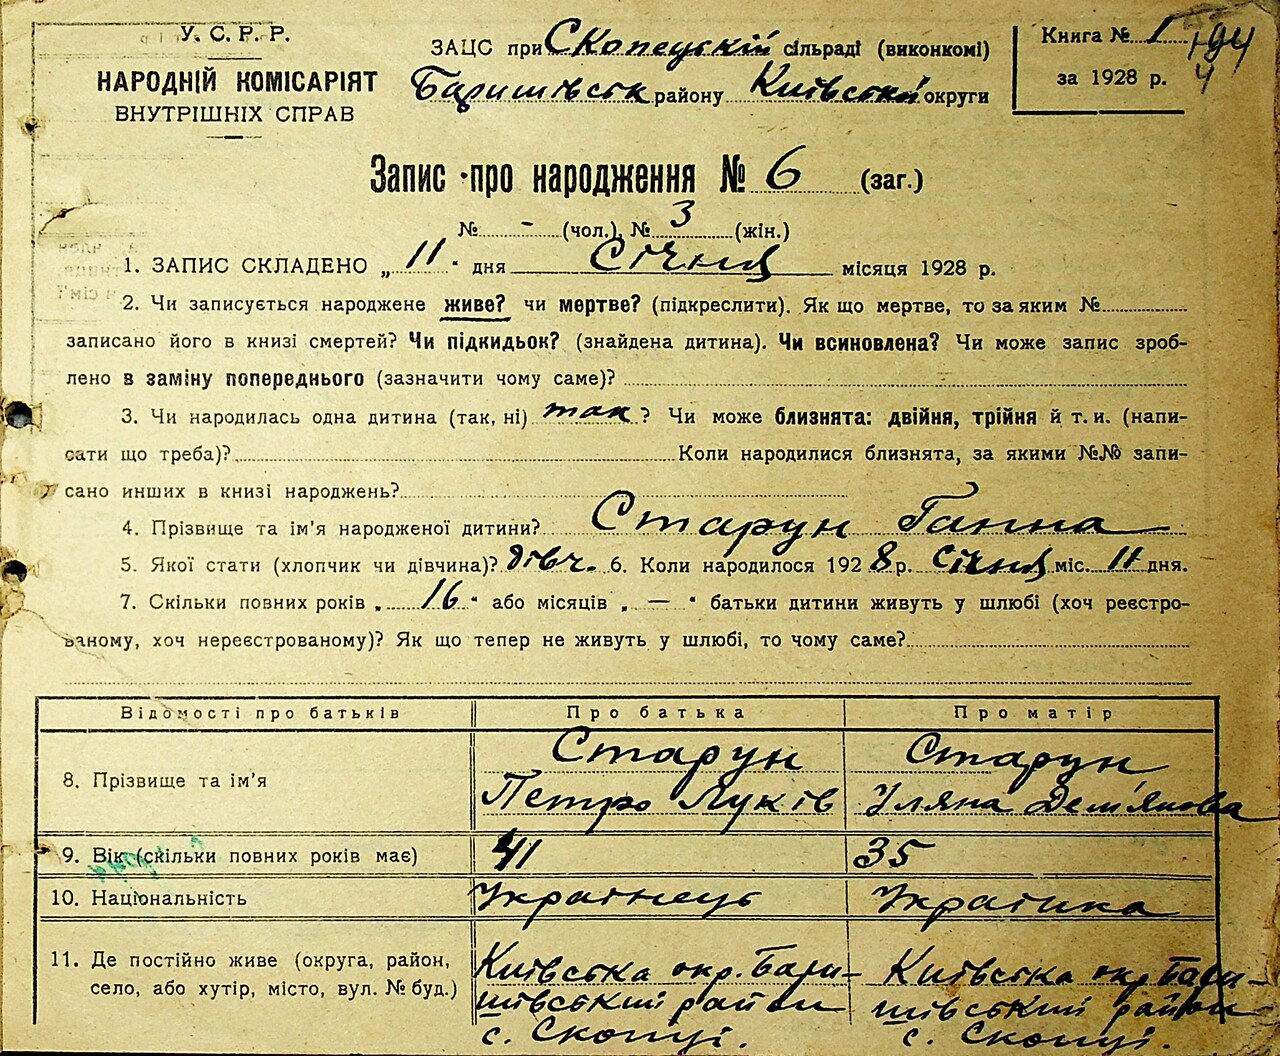 У. С. Р. Р.
НАРОДНІЙ КОМІСАРІЯТ
ВНУТРІШНІХ СПРАВ
ЗАЦС при Скопецькій сільраді (виконкомі)
Баришівськ району Київської округи
Книга № 1
за 1928 р.
194
4
Запис про народження № 6 (заг.)
№ - (чол.), № 3 (жін.)
1. ЗАПИС СКЛАДЕНО „ 11 " дня Січня місяця 1928 р.
2. Чи записується народжене живе? чи мертве? (підкреслити). Як що мертве, то за яким №
записано його в книзі смертей? Чи підкидьок? (знайдена дитина). Чи всиновлена? Чи може запис зроб-
лено в заміну попереднього (зазначити чому саме)?
3. Чи народилась одна дитина (так, ні) так ? Чи може близнята: двійня, трійня й т. и. (напи-
сати що треба)? Коли народилися близнята, за якими №№ запи-
сано инших в книзі народжень?
4. Прізвище та ім'я народженої дитини? Старун Ганна
5. Якої стати (хлопчик чи дівчина)? дівч. 6. Коли народилося 1928 р. січня міс. 11 дня.
7. Скільки повних років „ 16 " або місяців „ — " батьки дитини живуть у шлюбі (хоч реєстро-
ваному, хоч нереєстрованому)? Як що тепер не живуть у шлюбі, то чому саме?
Відомості про батьків Про батька Про матір
8. Прізвище та ім'я Старун Петро Луків Старун Уляна Дем'янова
9. Вік (скільки повних років має) 41 35
10. Національність Українець Українка
11. Де постійно живе (округа, район,
село, або хутір, місто, вул. № буд.)
Київська окр. Бари-
шівський район
с. Скопці.
Київська окр. Бари-
шівський район
с. Скопці.